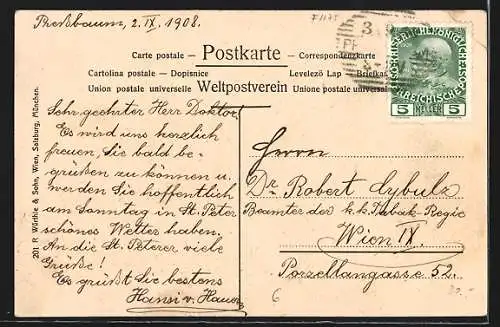 Preßbaum, 2. IX. 1908.
Carte postale - Postkarte - Correspondenzkarte
Cartolina postale - Dopisnice Levelező Lap -
Union postale universelle Weltpostverein Union postale
KAISERLICHE KÖNIGLICHE ÖSTERREICHISCHE POST
5 HELLER 5
201 R. Würthle & Sohn, Wien, Salzburg, München.
Sehr geehrter Herr Doktor!
Es wird uns herzlich
freuen, Sie bald be-
grüßen zu können u.
werden Sie hoffentlich
am Sonntag in St. Peter
schönes Wetter haben.
An die St. Peterer viele
Grüße!
Es grüßt Sie bestens
Hansi v.
Herrn
Dr. Robert Cybulz
Beamter der k.k. Tabak-Regie
Wien IX.
Porzellangasse 52.
6